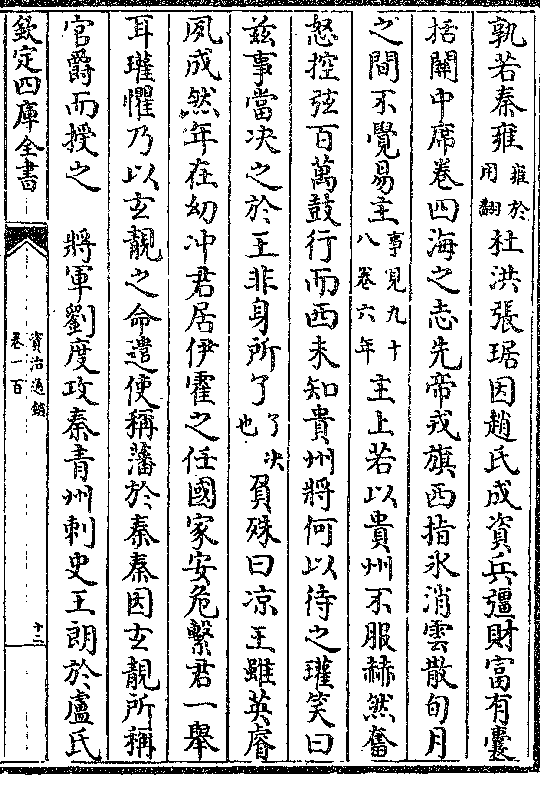 孰若秦雍雍於用翻杜洪張琚因趙氏成資兵彊財富有囊
括關中席卷四海之志先帝戎旗西指氷消雲散旬月
之間不覺易主事見九十八卷六年主上若以貴州不服赫然奮
怒控弦百萬鼓行而西未知貴州將何以待之瓘笑曰
兹事當决之於王非身所了了决也負殊曰凉王雖英睿
夙成然年在幼冲君居伊霍之任國家安危繫君一舉
耳瓘懼乃以玄靚之命遣使稱藩於秦秦因玄靚所稱
官爵而授之　將軍劉度攻秦青州刺史王朗於盧氏
欽定四庫全書
資治通鑑
卷一百
十二